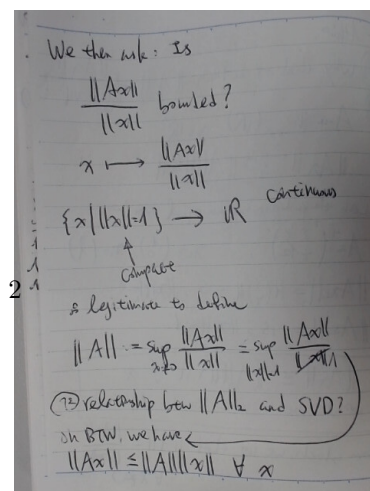 We then ask: Is
||Ax|| / ||x|| bounded?
x ⟼ ||Ax|| / ||x||
{x | ||x||=1} → ℝ continuous
↑
compact
2
so legitimate to define
||A|| := sup_{x≠0} ||Ax|| / ||x|| = sup_{||x||=1} ||Ax|| / ||x||
relationship btw ||A||₂ and SVD?
BTW, we have
||Ax|| ≤ ||A|| ||x|| ∀ x